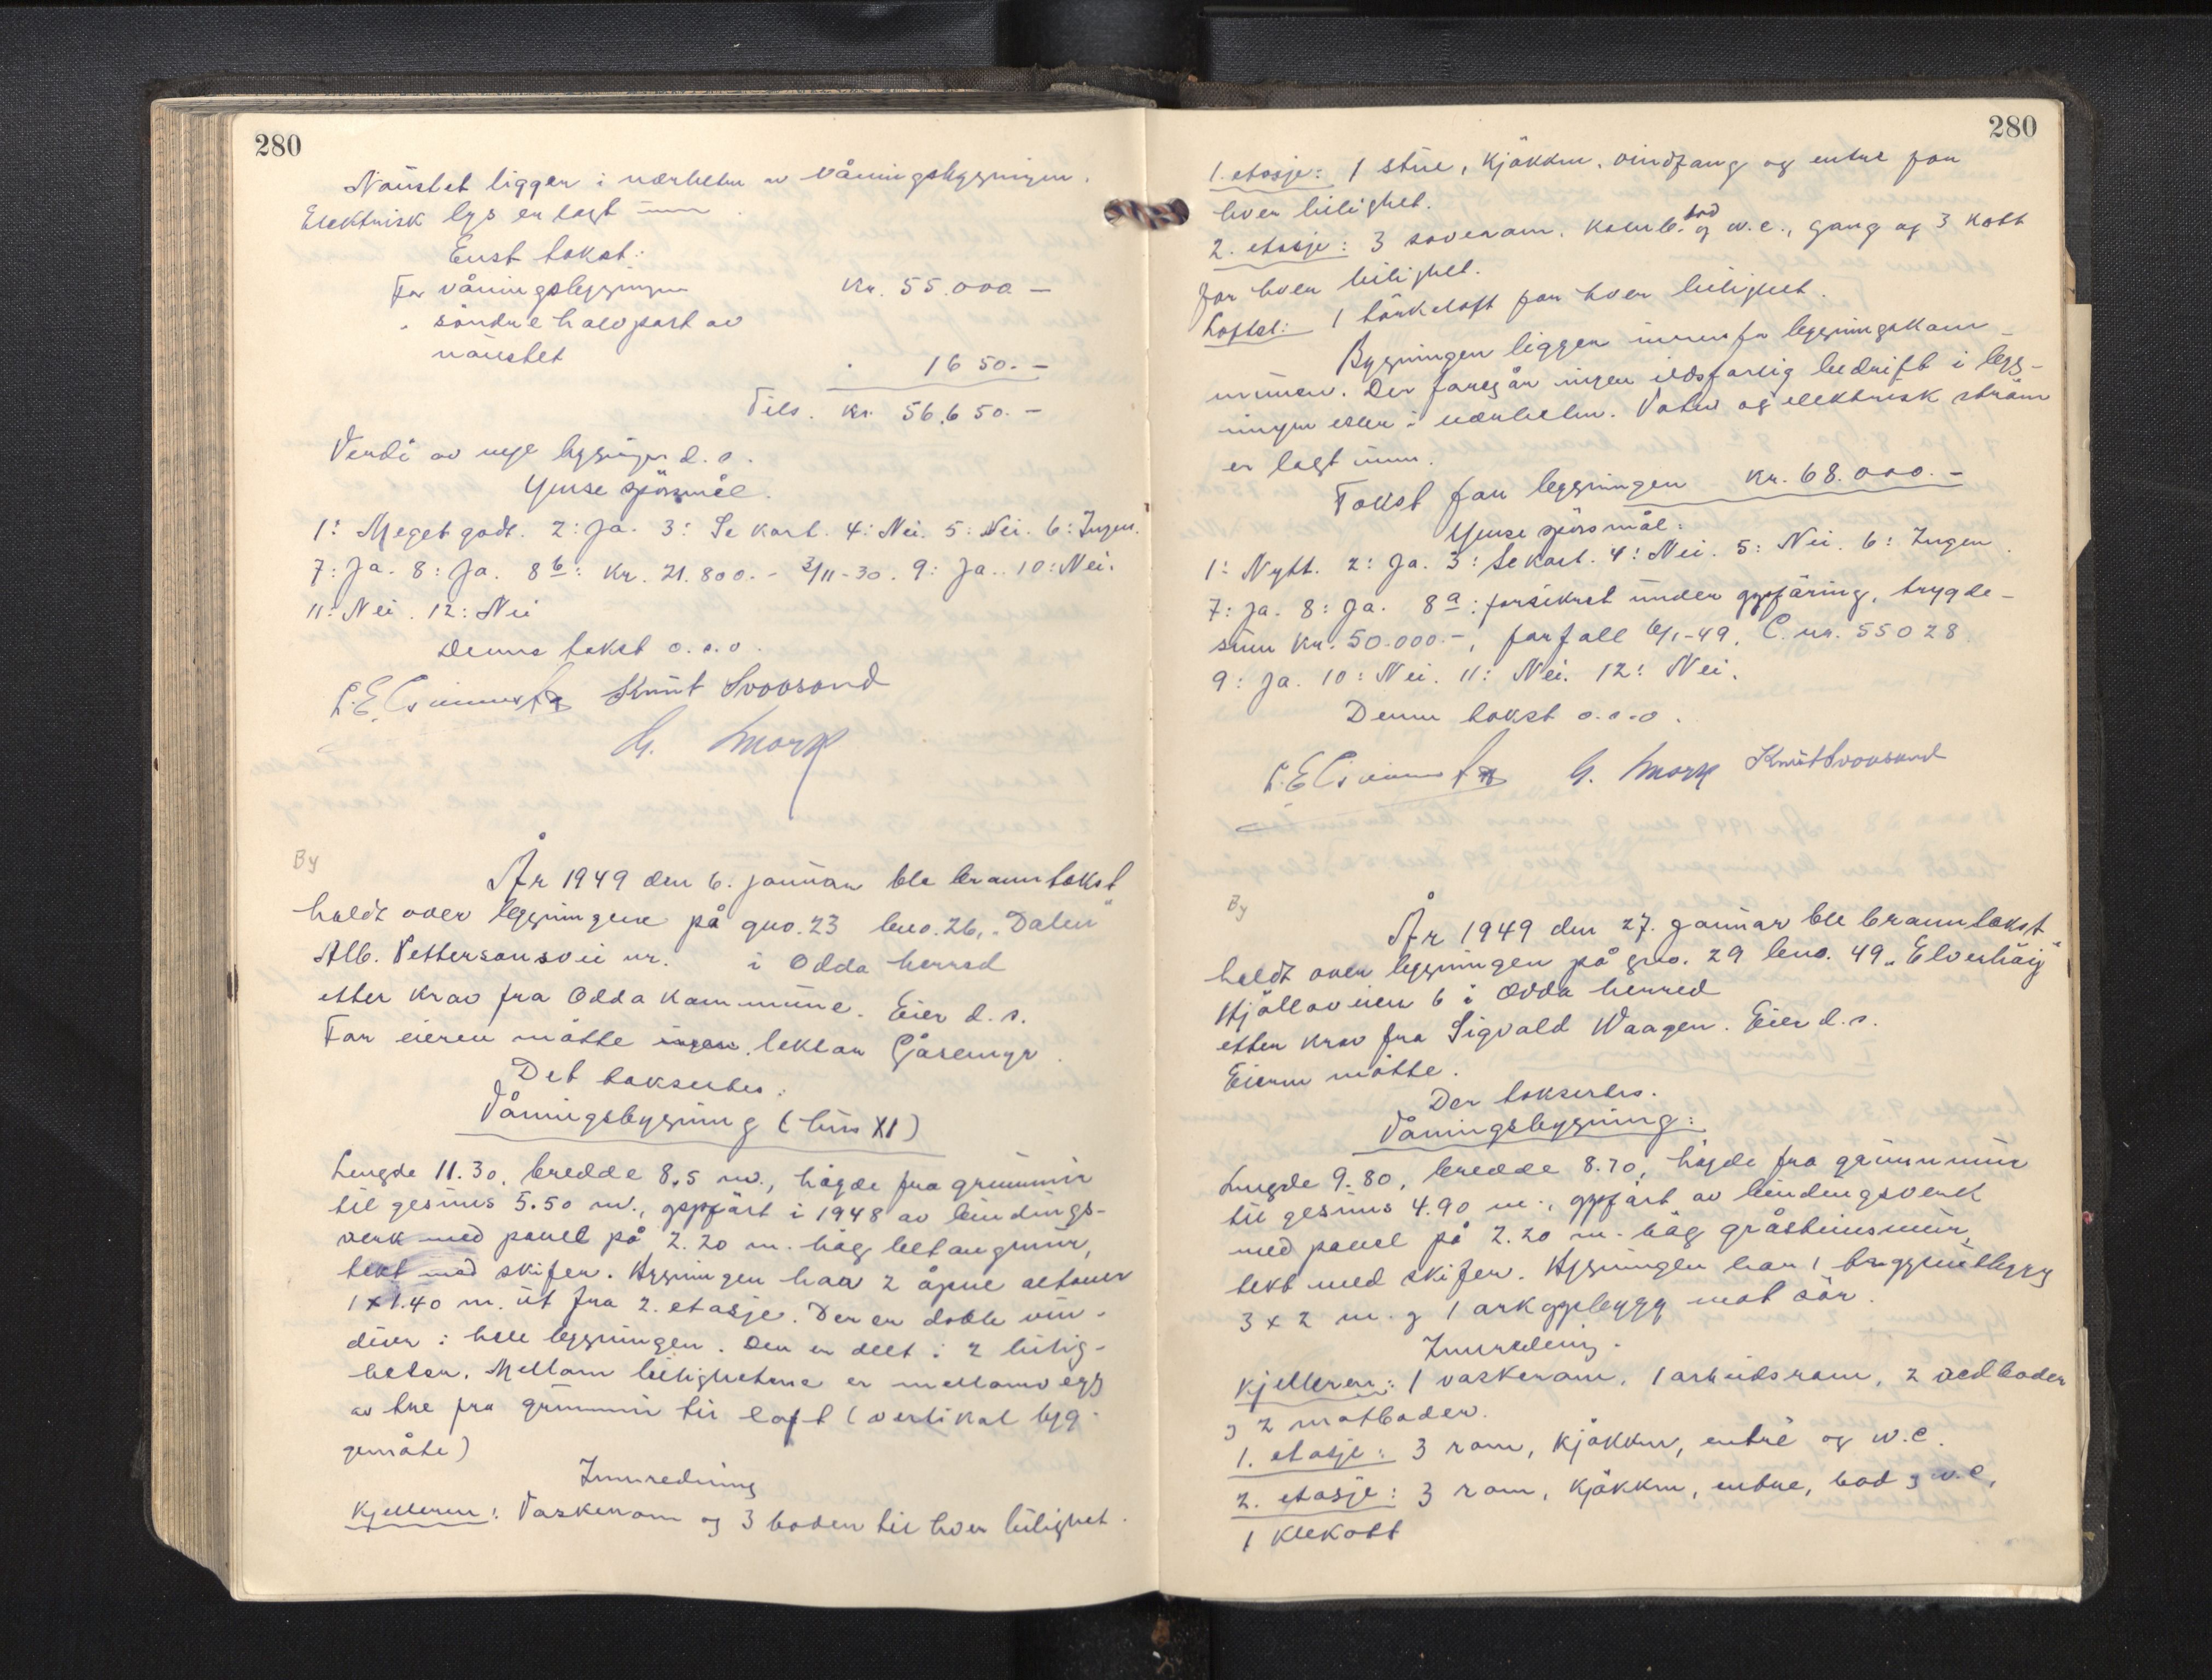 280
Naustet ligger i nærheten av våningsbygningen.
Elektrisk lys er lagt inn
takst:
For våningsbygningen Kr. 55.000 —
" söndre halvpart av
naustet " 1650.—
Tils. Kr. 56.650.—
Verdi av nye bygninger d. s.
Ymse spörsmål.
1: Meget godt. 2: Ja. 3: Se kart. 4: Nei. 5: Nei. 6: Ingen.
7: Ja. 8: Ja. 8b: Kr. 21.800.- 3/11-30. 9: Ja. 10: Nei.
11: Nei. 12: Nei
Denne takst o.s.v.
Knut
G. Mork
By
År 1949 den 6. januar ble branntakst
holdt over bygningene på gno. 23 bno. 26, "Dalen"
Alb. Pettersonsvei nr. i Odda herred
etter krav fra Odda kommune. Eier d. s.
For eieren møtte ingen. lektor Gåsemyr.
Det takseertes:
Våningsbygning (hus XI)
Lengde 11.30, bredde 8,5 m., høgde fra grunnmur
til gesims 5.50 m., oppført i 1948 av bindings-
verk med panel på 2.20 m. høg betongmur,
tekt med skifer. Bygningen har 2 åpne altaner
1 x 1.40 m. ut fra 2. etasje. Der er doble vin-
duer i hele bygningen. Den er delt i 2 leilig-
heter. Mellom leilighetene er mellomvegg
av tre fra grunnmur til loft (vertikal byg-
gemåte)
Innredning
Kjelleren: Vaskerom og 3 boder til hver leilighet.
280
1. etasje: 1 stue, kjøkken, vindfang og entre for
hver leilighet.
2. etasje: 3 soverom, komb. bad og w.c., gang og 3 kott
for hver leilighet.
Loftet: 1 tørkeloft for hver leilighet.
Bygningen ligger innenfor bygningskom-
munen. Der foregår ingen ildsfarlig bedrift i byg-
ningen eller i nærheten. Vatn og elektrisk strøm
er lagt inn.
Takst for bygningen Kr. 68.000.—
Ymse spörsmål:
1: Nytt. 2: Ja. 3: Se kart. 4: Nei. 5: Nei. 6: Ingen.
7: Ja. 8: Ja. 8a: forsikret under oppføring, trygde-
sum Kr. 50.000.-, forfall 6/1-49, C. nr. 55028
9: Ja. 10: Nei. 11: Nei. 12: Nei.
Denne takst o.s.v.
G. Mork Knut
By
År 1949 den 27. januar ble branntakst
holdt over bygningen på gno. 29 bno. 49 "Elverhøy"
Hjøllaveien 6 i Odda herred
etter krav fra Sigvald Waagen. Eier d. s.
Eieren møtte.
Der taksertes.
Våningsbygning:
Lengde 9.80, bredde 8.70, høgde fra grunnmur
til gesims 4.90 m., oppført av bindingsverk
med panel på 2.20 m. høg gråsteinsmur,
tekt med skifer. Bygningen har 1 trappeutbygg
3 x 2 m. og 1 arkoppbygg mot sør.
Innredning.
Kjelleren: 1 vaskerom, 1 arbeidsrom, 2 vedboder
og 2 matboder.
1. etasje: 3 rom, kjøkken, entré og w.c.
2. etasje: 3 rom, kjøkken, entre, bad og w.c,
1 klekott